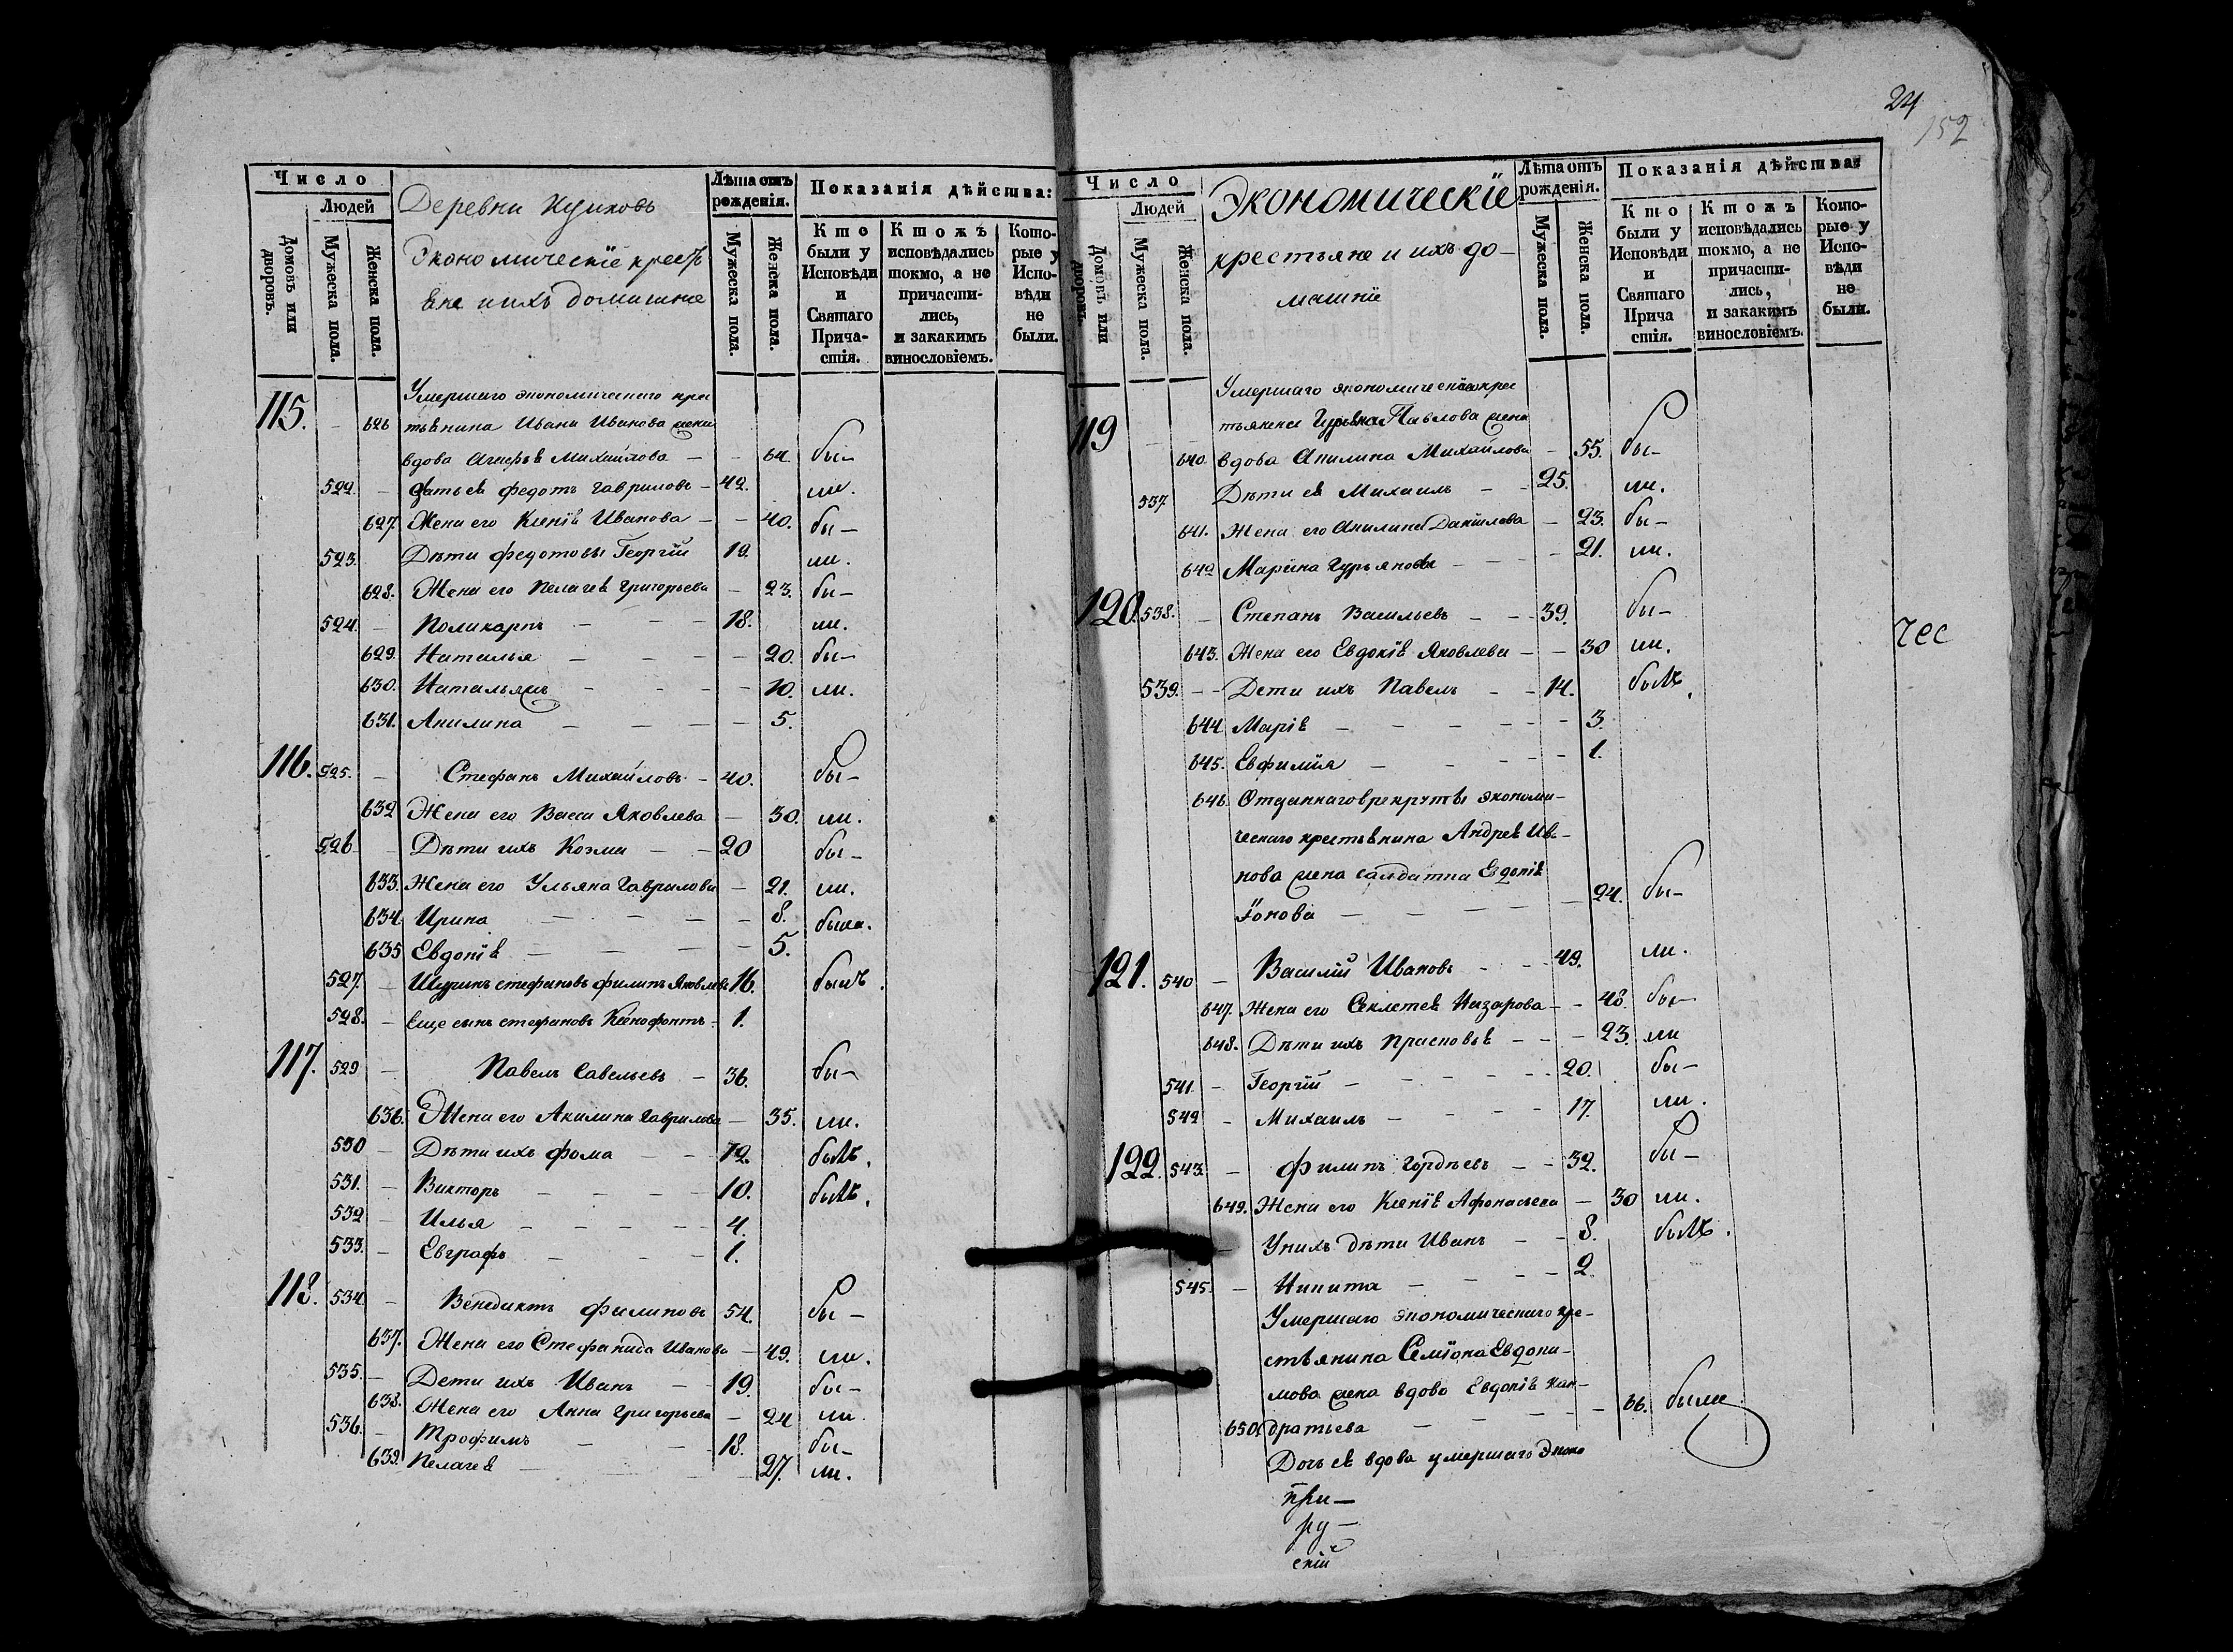 Число
Людей
Домовъ или дворовъ.
Мужеска пола.
Женска пола.
Деревни
Экономическіе крестъ
ѣне и ихъ домашніе
Лѣта отъ рожденія.
Мужеска пола.
Женска пола.
Показанія дѣйства:
Кто были у Исповѣди и Святаго Причастія.
Ктожъ исповѣдались токмо, а не причастились, и закакимъ винословіемъ.
Которые у Исповѣди не были.
Умершаго экономическаго крес
115. – 626 тьѣнина Ивана Иванова жена
вдова Михайлова – – 64 бы–
522. – Зять ев федотъ Гавриловъ – 42. ли.
627. Жена его Ксенія Иванова – – 40. бы–
523. Дѣти федотовы Георгій 19. ли.
628. Жена его Пелагея Григорьева – 23. бы–
524. – Поликарпъ – – – 18. ли.
629. Наталья – – – – 20. бы–
630. – – – – 10. ли.
631. Акилина – – – – 5.
116. 525. – Стефанъ Михайловъ – 40. бы–
632 Жена его Васса Яковлева – 30. ли.
526 – Дѣти ихъ Козма – – 20 бы–
633. Жена его Ульяна Гаврилова – 21. ли.
634 Ирина – – – – 8. была.
635 Евдокія – – – – 5.
527. – Шуринъ стефановъ филипъ Яковлевъ 16. былъ.
528. – Еще сынъ стефановъ Ксенофонтъ – 1.
117. 529 – Павелъ Савельевъ – 36. бы–
636. Жена его Акилина Гаврилова – 35. ли.
530 – Дѣти ихъ фома – – 12. былъ.
531. – Викторъ – – – – 10. былъ.
532 – Илья – – – – – 4.
533. – Евграфъ – – – 1.
118. 534. – Венедиктъ филиповъ 54. бы–
637. Жена его Стефанида Иванова – 49. ли.
535. – Дети ихъ Иванъ – – 19. бы–
638. Жена его Анна Григорьева – 24 ли.
536. – Трофимъ – – 18. бы–
639. Пелагея – – – – 27. ли.
24
152
Число
Людей
Домовъ или дворовъ.
Мужеска пола.
Женска пола.
Экономическіе
крестьяне и ихъ до–
машніе
Лѣта отъ рожденія.
Мужеска пола.
Женска пола.
Показанія дѣйства
Кто были у Исповѣди и Святаго Причастія.
Ктожъ исповѣдались токмо, а не причастились, и закакимъ винословіемъ.
Которые у Исповѣди не были.
Умершаго экономическаго крес
тьянина Павлова жена
119 – – 640. вдова Акилина Михайлова – 55. бы–
537 Дѣти ея Михаилъ – – 25. ли.
641. Жена его Акилина Данилова – 23. бы–
642 Марина Гурьянова – – – 21. ли.
120. 538. – Степанъ Васильевъ – – 39. бы–
643. Жена его Евдокія Яковлева – – 30 ли.
539. – – Дети ихъ Павелъ – – 14. былъ.
644 Марія – – – – – – 3.
645. Евфимія – – – – – 1.
646 Отданнаго в рекруты экономи–
ческаго крестьѣнина Андрея Ива–
нова жена салдатка Евдокія
Іонова – – – – – 24. бы–
121. 540 – Василій Ивановъ – – 49. ли.
647. Жена его Секлетея Назарова – – 48. бы–
648. Дѣти ихъ Прасковья – – – 23. ли
541. – Георгій – – – – – 20. бы–
542 – Михаилъ – – – – 17. ли.
122. 543. – филипъ Гордѣевъ – – 32. бы–
649. Жена его Ксенія Афонасьева – 30 ли.
– У нихъ дѣти Иванъ – – 8. былъ.
545. – Никита – – – – 2.
Умершаго экономическаго кре–
стьянина Семіона Евдоки–
мова жена вдова Евдокія Кон–
650 дратьева – – – – – 66. были
Дочь ея вдова умершаго эконо
при–
ру–
скій
чес